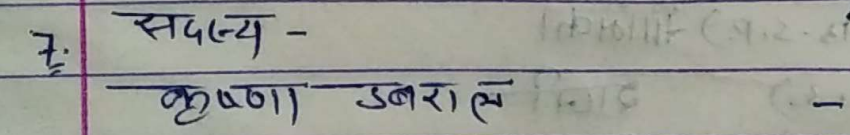 7. सदस्य -
कृष्णा डबराल -